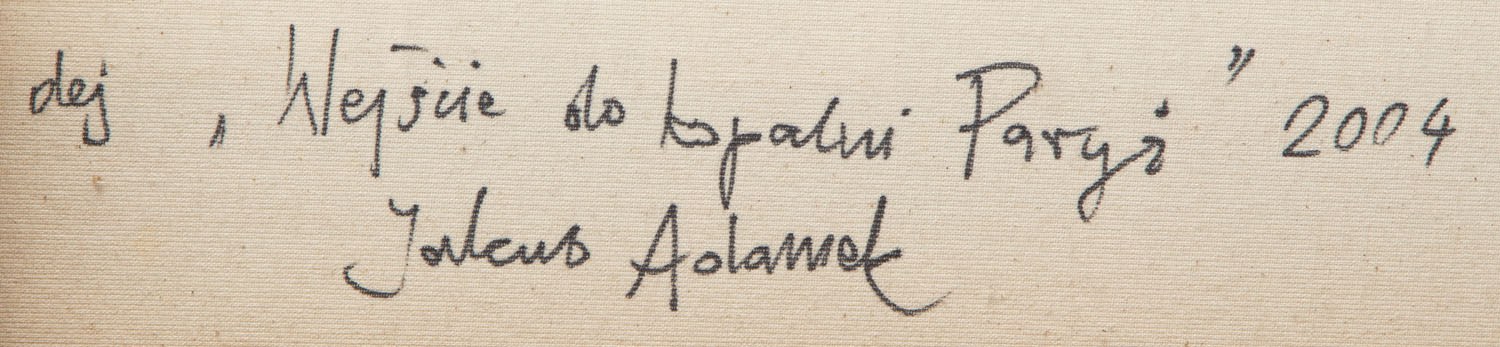 dej „Wejście do kopalni Paryż” 2004
Jakub Adamek